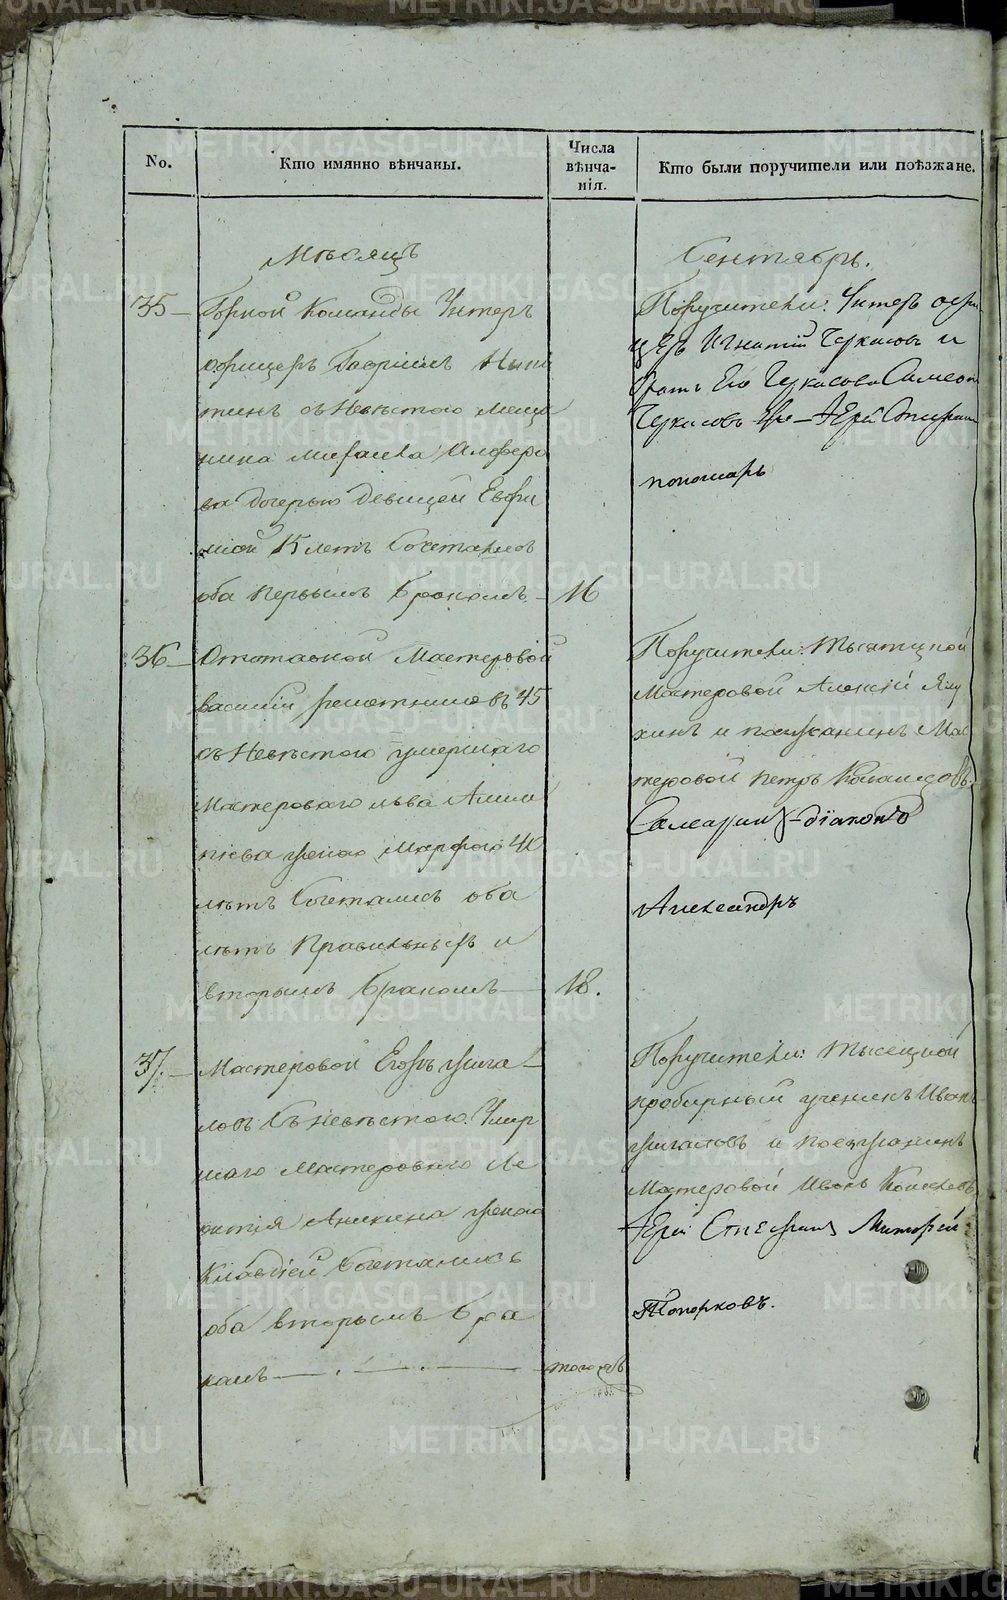 No.
Кто имянно вѣнчаны.
Числа
вѣнча-
нія.
Кто были поручители или поѣзжане.
Мѣсяцъ
Сентябрь.
35 —
Горной Команды Унтеръ
офицеръ Гавріилъ Ники
тинъ съ Невѣстою Меща
нина Михаила Алферо
ва дочерью девицей Евфи
міей 15 летъ Сочетались
оба Первымъ бракомъ —
16
Поручители: Унтеръ офи
церъ Игнатій Черкасовъ и
братъ Его Черкасова Симеонъ
Черкасовъ
Іерей
пономарь
36 —
Отставной Мастеровой
Василій решетниковъ 45
съ Невѣстою умершаго
Мастероваго льва
женою Марфою 40
лѣтъ Сочетались оба
лѣтъ Правильныхъ и
вторымъ бракомъ —
18.
Поручители: Тысяцкой
Мастеровой Алексій
и поезжанинъ Мас
теровой Петръ
діаконъ
Александръ
37. —
Мастеровой Егоръ ужга-
ловъ Съ невѣстою Умер
шаго Мастероваго Ле
онтія Аникина женою
Клавдіей Сочетались
оба вторымъ бра
комъ — . — . —
того жъ
Поручители: Тысецкой
пробирный ученикъ Иванъ
ужгаловъ и Поезжанинъ
Мастеровой Иванъ
Іерей Стефанъ
Топорковъ.
METRIKI.GASO-URAL.RU